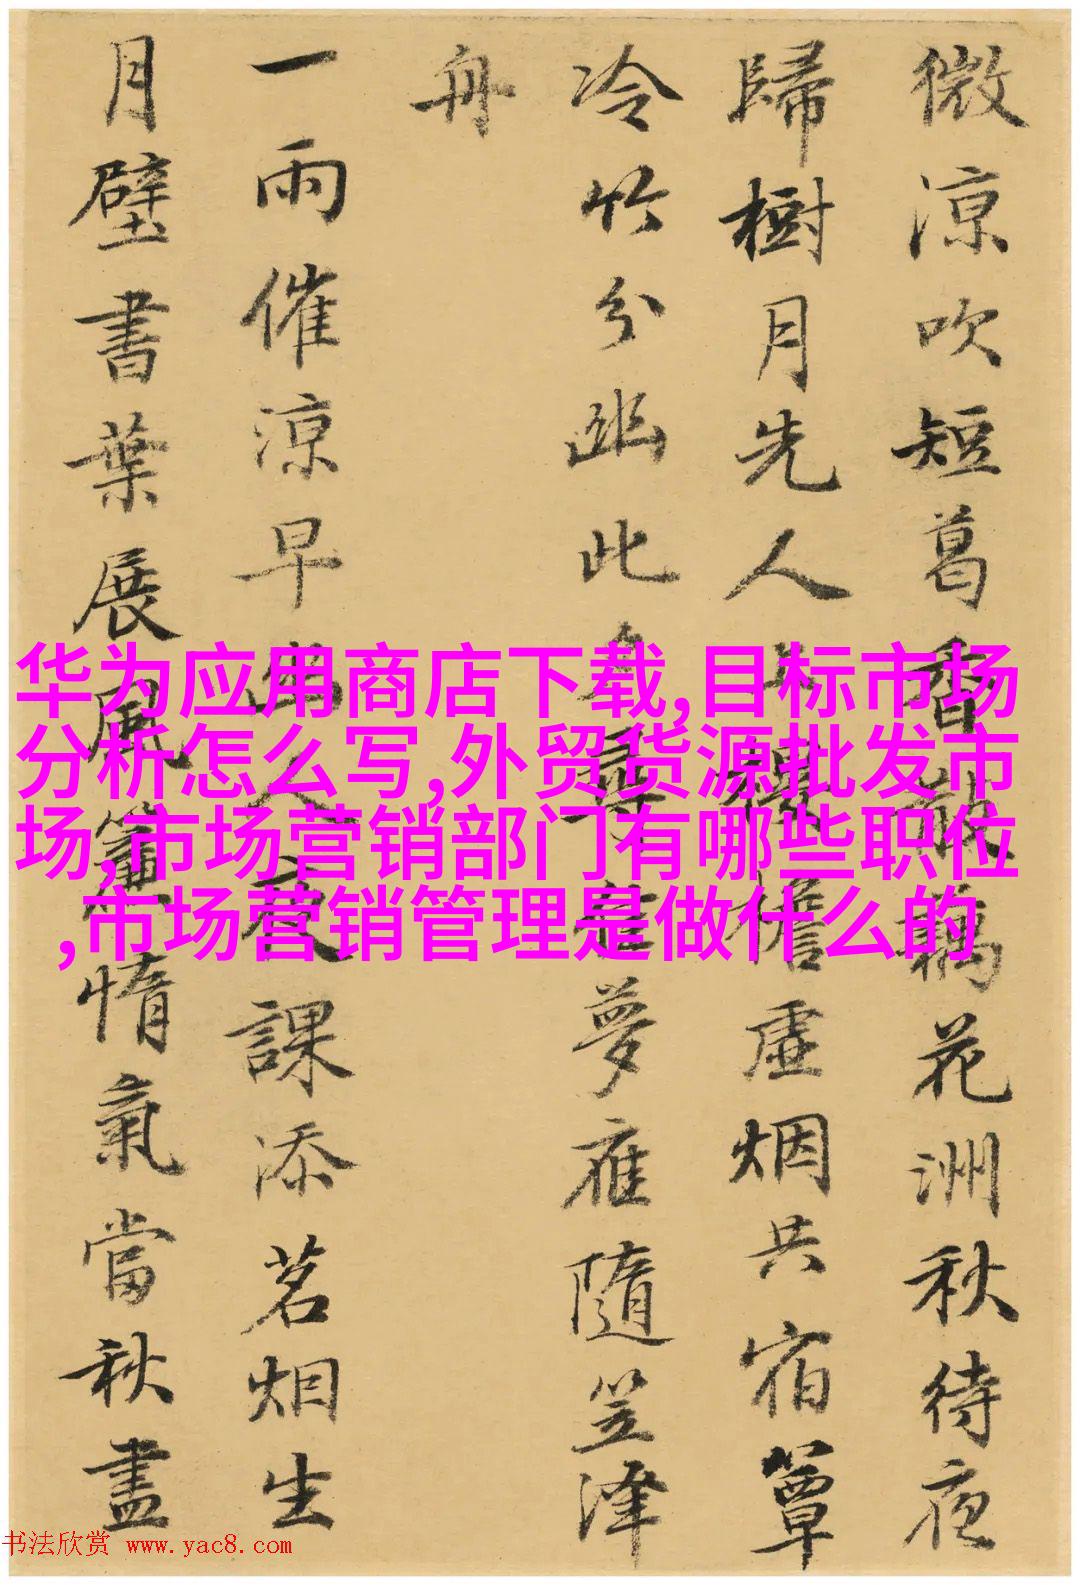 微涼吹短葛香散藕花洲秋待夜
歸樹月先人上樓檐虛烟共宿簟
冷竹分幽此尋夢雁隨笠澤
舟
一雨催涼早幽人夜課添茗烟生
月壁書葉展風簾惰氣當秋盡
华为应用商店下载,目标市场
分析怎么写,外贸货源批发市
场,市场营销部门有哪些职位
,市场营销管理是做什么的
书法欣赏 www.yac8.com